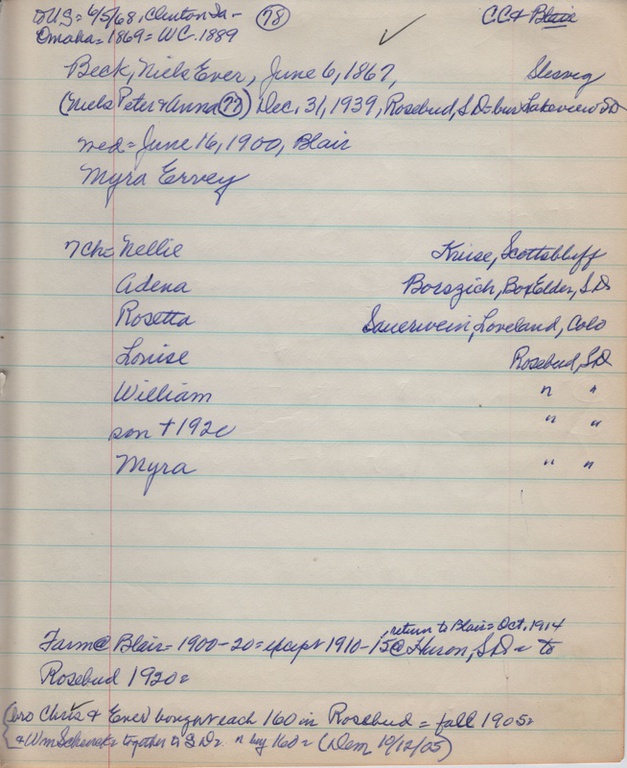 2US = 6/5/68, Clinton Ia - (78) CC & Blair
Omaha = 1869 = WC. 1889
Beck, Niels Ever, June 6, 1867, Slesvig
(Niels Peter & Anna (77)) Dec. 31, 1939, Rosebud, S.D = bur Lakeview SD
wed = June 16, 1900, Blair
Myra Ervey
7 ch = Nellie Kruse, Scottsbluff
Adena Borszich, Box Elder, S.D
Rosetta Sauerwein, Loveland, Colo
Louise Rosebud, S.D
William " "
son + 1920 " "
Myra " "
, return to Blair = Oct, 1914
Farm @ Blair = 1900-20 = except 1910-15 @ Huron, S.D = to
Rosebud 1920 =
(bro Chris & Ever) bought each 160 in Rosebud = fall 1905 =
& Wm together to S.D = " buy 160 = (Dem 10/12/05)